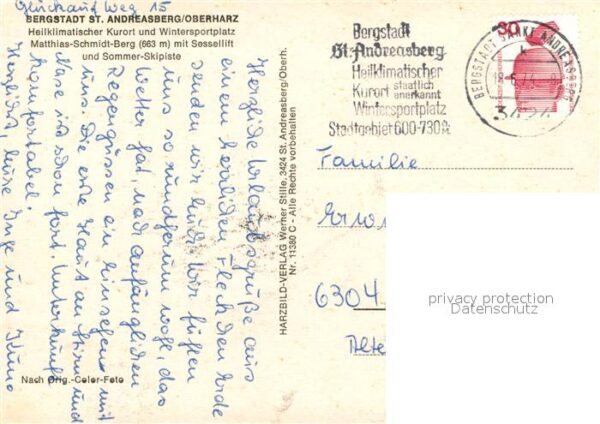 Glückauf Weg 15
BERGSTADT ST. ANDREASBERG/OBERHARZ
Heilklimatischer Kurort und Wintersportplatz
Matthias-Schmidt-Berg (663 m) mit Sessellift
und Sommer-Skipiste
Herzliche Urlaubsgrüße aus
einem herrlichen Fleckchen Erde
senden wir Euch. Wir fühlen
uns so rundherum wohl, das
Wetter hat, nach anfänglichen
Regengüssen ein Einsehen mit
uns. Die erste Haut an Stirn und
Nase ist schon fort. Unterkunft
komfortabel.
Herzlichst, Eure Inge und Kuno
Nach Orig.-Color-Foto
HARZBILD-VERLAG Werner Stille, 3424 St. Andreasberg/Oberh.
Nr. 11380 C - Alle Rechte vorbehalten
Bergstadt
St. Andreasberg
Heilklimatischer
Kurort staatlich anerkannt
Wintersportplatz
Stadtgebiet 600-730 m
BERGSTADT SANKT ANDREASBERG
3424
30
Familie
6304
privacy protection
Datenschutz